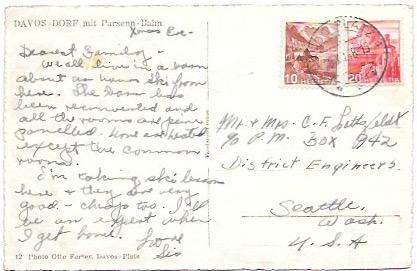 DAVOS-DORF mit Parsenn-Bahn
Xmas Eve-
Dearest Family -
We all live in a barn
about an hours ski from
here. The barn has
been reconverted and
all the rooms are pine
panelled. None are heated
except the common
rooms.
I'm taking ski lessons
here & they are very
good - cheap too. I'll
be an expert when
I get home. Love
Sis
12 Photo Otto Furter, Davos-Platz
10
20
Mr. & Mrs. C. F. Littlefield
% P.M. Box 942
District Engineers
Seattle,
Wash.
U.S.A